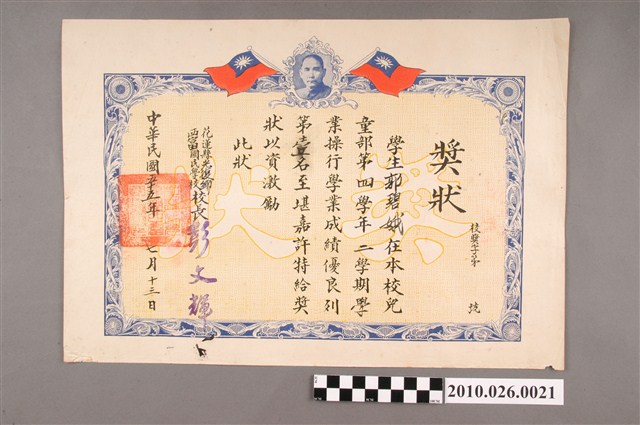 獎狀
校獎字第 號
學生郭碧娥在本校兒
童部第四學年二學期學
業操行學業成績優良列
第壹名至堪嘉許特給獎
狀以資激勵
此狀
花蓮縣光復鄉
西富國民學校
校長彭文輝
中華民國卅五年 七月十三日
獎狀
2010.026.0021